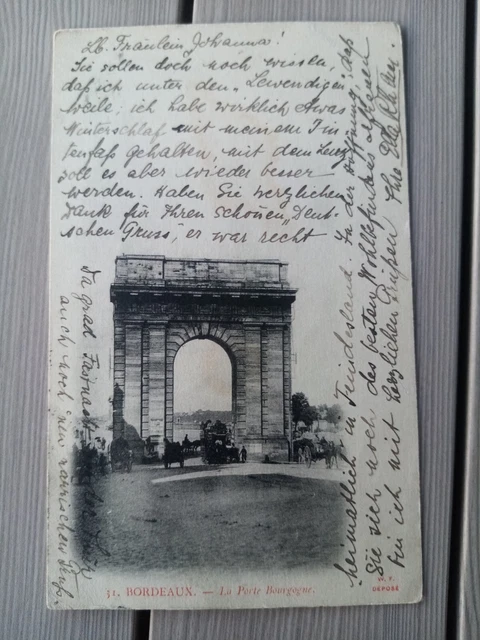 Lb. Fräulein Johanna!
Sie sollen doch noch wissen,
daß ich unter den „Lewendigen"
weile; ich habe wirklich etwas
Winterschlaf mit meinem Tin
tenfaß gehalten, mit dem Lenz
soll es aber wieder besser
werden. Haben Sie herzlichen
Dank für Ihren schönen „Deut-
schen Gruss", er war recht
heimatlich in Feindesland. In der Hoffnung, daß
Sie sich noch des besten Wohlbefindens erfreuen
bin ich mit herzlichen Grüßen Ihre
Da grad Fastnacht
auch noch 'nen närrischen
31. BORDEAUX. — La Porte Bourgogne.
DÉPOSÉ